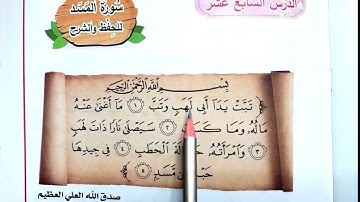 الدرس السابع عشر
سُورَةُ المَسَد
للحِفْظِ والشرح
بِسْمِ اللَّهِ الرَّحْمَٰنِ الرَّحِيمِ
تَبَّتْ يَدَا أَبِي لَهَبٍ وَتَبَّ ١ مَا أَغْنَىٰ عَنْهُ
مَالُهُ وَمَا ٢ سَيَصْلَىٰ نَارًا ذَاتَ لَهَبٍ
٣ وَامْرَأَتُهُ الْحَطَبِ ٤ فِي جِيدِهَا
مِّن مَّسَدٍ ٥
صدق الله العلي العظيم